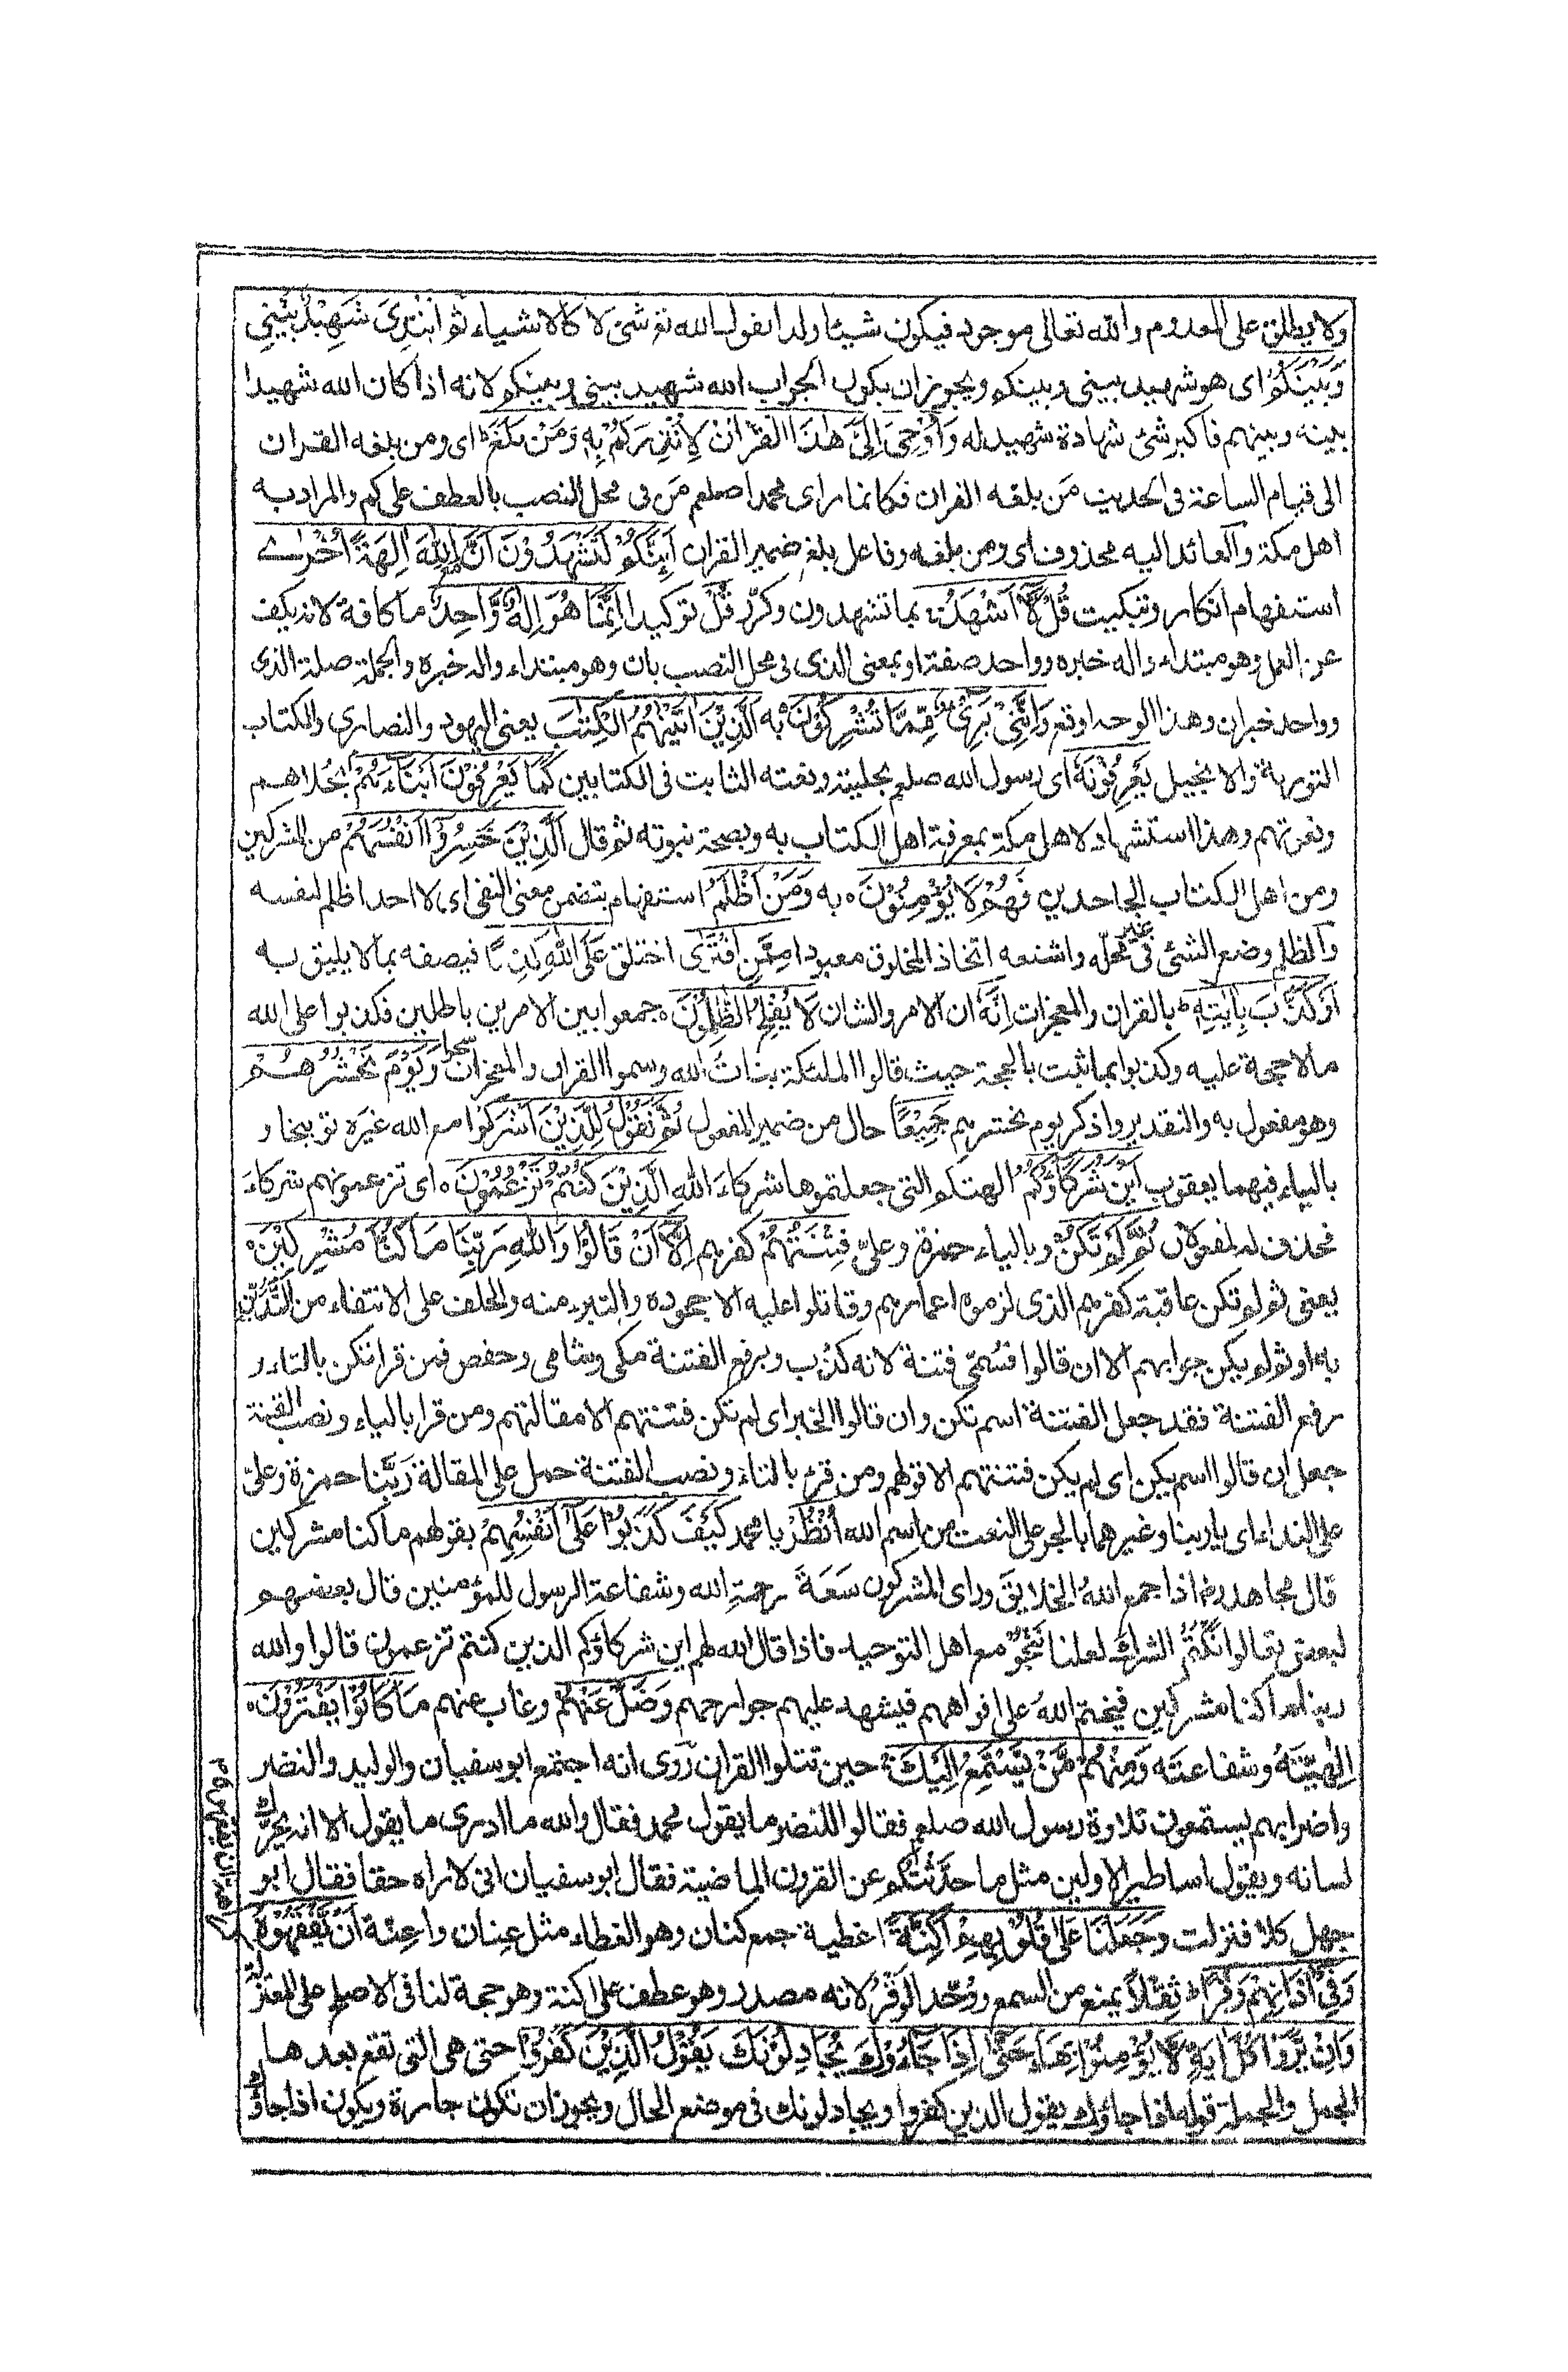 ولا يطلق على المعدوم والله تعالى موجود فيكون شيئا ولذا نقول الله تع شئ لا كالاشياء ثم ابتدئ شَهِيْدٌۢ بَيْنِي
وَبَيْنَكُمْ اى هو شهيد بينى وبينكم ويجوز ان يكون الجواب الله شهيد بينى وبينكم لانه اذا كان الله شهيدا
بينه وبينهم فاكبر شئ شهادة شهيد له وَاُوْحِيَ اِلَيَّ هٰذَا الْقُرْاٰنُ لِاُنْذِرَكُمْ بِهٖ وَمَنْۢ بَلَغَ اى ومن بلغه القران
الى قيام الساعة فى الحديث مَن بلغه القران فكانما راى محمدا صلعم مَن فى محل النصب بالعطف على كم والمراد به
اهل مكة والعائد اليه محذوف اى ومن بلغه وفاعل بلغ ضمير القران اَئِنَّكُمْ لَتَشْهَدُوْنَ اَنَّ مَعَ اللّٰهِ اٰلِهَةً اُخْرٰے
استفهام انكار وتبكيت قُلْ لَّاۤ اَشْهَدُ بما تشهدون وكرّر قُلْ توكيدا اِنَّمَا هُوَ اِلٰهٌ وَّاحِدٌ ما كافة لانّ يكف
عن العمل وهو مبتداء واله خبره وواحد صفة او بمعنى الذى فى محل النصب بان وهو مبتداء واله خبره والجملة صلة الذى
وواحد خبر ان وهذا الوجه اوقع وَاِنَّنِيْ بَرِيْٓءٌ مِّمَّا تُشْرِكُوْنَ به اَلَّذِيْنَ اٰتَيْنٰهُمُ الْكِتٰبَ يعنى اليهود والنصارى والكتاب
التورىة والانجيل يَعْرِفُوْنَهٗ اى رسول الله صلعم بحليته ونعته الثابت فى الكتابين كَمَا يَعْرِفُوْنَ اَبْنَآءَهُمْ بحُلاهم
ونعوتهم وهذا استشهاد لاهل مكة بمعرفة اهل الكتاب به وبصحة نبوته ثم قال اَلَّذِيْنَ خَسِرُوْٓا اَنْفُسَهُمْ من المشركين
ومن اهل الكتاب الجاحدين فَهُمْ لَا يُؤْمِنُوْنَ به وَمَنْ اَظْلَمُ استفهام يتضمن معنى النفى اى لا احد اظلم لنفسه
والظلم وضع الشئ فى غير محلّه واشنعه اتخاذ المخلوق معبودا مِمَّنِ افْتَرٰى اختلق عَلَى اللّٰهِ كَذِبًا فيصفه بما لا يليق به
اَوْ كَذَّبَ بِاٰيٰتِهٖ بالقران والمعجزات اِنَّهٗ ان الامر والشان لَا يُفْلِحُ الظّٰلِمُوْنَ جمعوا بين الامرين باطلين فكذبوا على الله
مالا حجة عليه وكذبوا بما ثبت بالحجة حيث قالوا الملئكة بناتُ الله وسموا القران والمعجزات سحرا وَيَوْمَ نَحْشُرُهُمْ
وهو مفعول به والتقدير واذكر يوم نحشرهم جَمِيْعًا حال من ضمير المفعول ثُمَّ نَقُوْلُ لِلَّذِيْنَ اَشْرَكُوْا مع الله غيرَه توبيخا و
بالياء فيهما يعقوب اَيْنَ شُرَكَآؤُكُمُ الهتكم التى جعلتموها شركاءَ اللهِ الَّذِيْنَ كُنْتُمْ تَزْعُمُوْنَ اى تزعمونهم شركاءَ
فحذف المفعولان ثُمَّ لَمْ تَكُنْ وبالياء حمزة وعلىّ فِتْنَتُهُمْ كفرهم اِلَّاۤ اَنْ قَالُوْا وَاللّٰهِ رَبِّنَا مَا كُنَّا مُشْرِكِيْنَ
يعنى ثم لم تكن عاقبة كفرهم الذى لزموه اعمارهم وقاتلوا عليه الا جحوده والتبرء منه والحلف على الانتفاء من التَّدَيُّنِ
به او ثم لم يكن جوابهم الا ان قالوا فسُمّى فتنة لانه كذب وبرفع الفتنة مكى وشامى وحفص فمن قرا تكن بالتاء و
رفع الفتنة فقد جعل الفتنة اسم تكن وان قالوا الخبر اى لم تكن فتنتهم الا مقالتهم ومن قرا بالياء ونصب الفتنة
جعل ان قالوا اسم يكن اى لم يكن فتنتهم الا قولهم ومن قرء بالتاء ونصب الفتنة حمل على المقالة رَبَّنا حمزة وعلىّ
على النداء اى ياربنا وغيرهما بالجر على النعت من اسم الله اُنْظُرْ يا محمد كَيْفَ كَذَبُوْا عَلٰٓى اَنْفُسِهِمْ بقولهم ما كنا مشركين
قال مجاهد رض اذا جمع اللهُ الخلايقَ وراى المشركون سَعَةَ رحمةِ الله وشفاعة الرسول للمؤمنين قال بعضهم
لبعض تعالوا نَكْتُمُ الشرك لعلنا نَنْجُوْ مع اهل التوحيد فاذا قال الله لهم اين شركاؤكم الذين كنتم تزعمون قالوا والله
ربنا ما كنا مشركين فيختم اللهُ على افواههم فيشهد عليهم جوارحهم وَضَلَّ عَنْهُمْ وغاب عنهم مَا كَانُوْا يَفْتَرُوْنَ
اِلٰهيّتَهُ وشفاعتَه وَمِنْهُمْ مَّنْ يَّسْتَمِعُ اِلَيْكَ حين تتلوا القران رُوى انه اجتمع ابو سفيان والوليد والنضر
واضرابهم يستمعون تلاوة رسول الله صلعم فقالوا للنضر ما يقول محمد فقال والله ما ادرى ما يقول الا انه يحرّك
لسانه ويقول اساطير الاولين مثل ما حدَّثْتُكم عن القرون الماضية فقال ابو سفيان انى لاراه حقا فقال ابو
جهل كلا فنزلت وَجَعَلْنَا عَلٰى قُلُوْبِهِمْ اَكِنَّةً اغطية جمع كنان وهو الغطاء مثل عِنان واَعِنّة اَنْ يَّفْقَهُوْهُ
وَفِيْٓ اٰذَانِهِمْ وَقْرًا ثِقْلًا يمنع من السمع ووُحّد الوَقْرُ لانه مصدر وهو عطف على اكنة وهو حجة لنا فى الاصلح على المعتزلة
وَاِنْ يَّرَوْا كُلَّ اٰيَةٍ لَّا يُؤْمِنُوْا بِهَا حَتّٰٓى اِذَا جَآءُوْكَ يُجَادِلُوْنَكَ يَقُوْلُ الَّذِيْنَ كَفَرُوْٓا حتى هى التى تقع بعدها
الجمل والجملة قوله اذا جاؤك يقول الذين كفروا ويجادلونك فى موضع الحال ويجوز ان تكون جارة ويكون اذا جاؤك